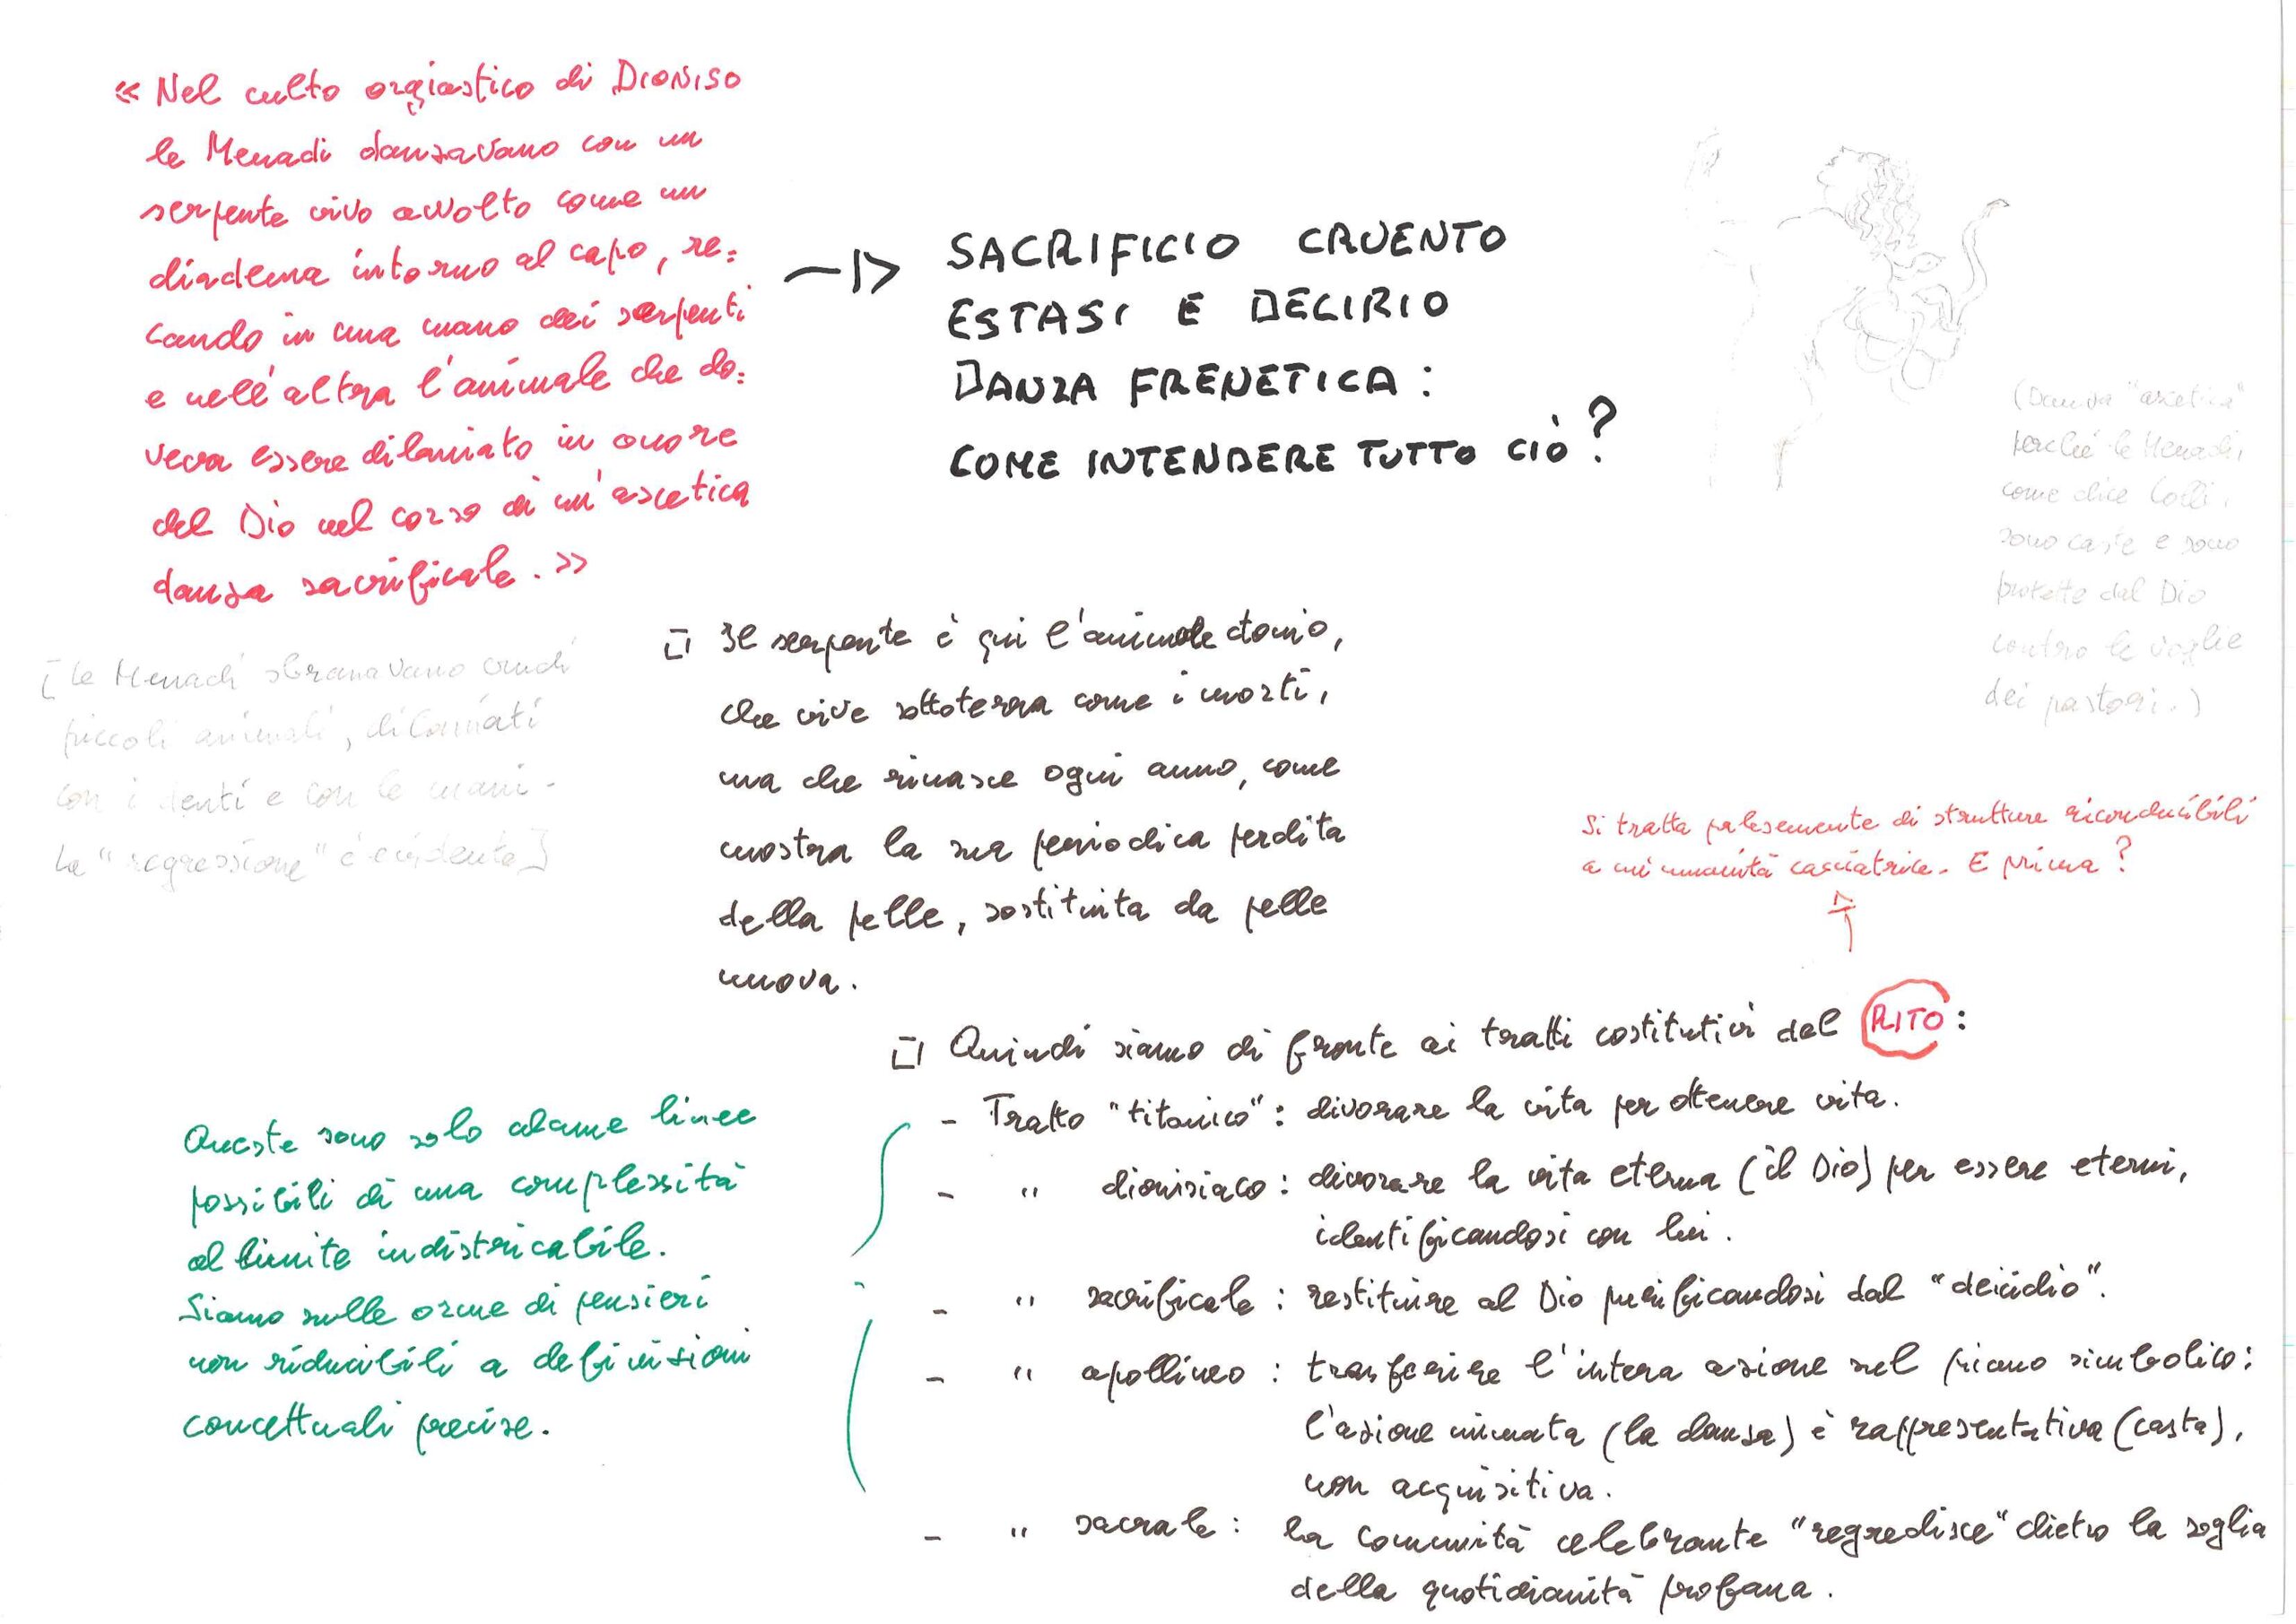 « Nel culto orgiastico di Dioniso
le Menadi danzavano con un
serpente vivo avvolto come un
diadema intorno al capo, re=
cando in una mano dei serpenti
e nell'altra l'animale che do=
veva essere dilaniato in onore
del Dio nel corso di un'ascetica
danza sacrificale. »
[Le Menadi sbranavano crudi
piccoli animali, dilaniati
con i denti e con le mani.
La "regressione" è evidente]
SACRIFICIO CRUENTO
ESTASI E DELIRIO
DANZA FRENETICA :
COME INTENDERE TUTTO CIÒ ?
(Danza "ascetica"
perché le Menadi,
come dice Colli,
sono caste e sono
protette dal Dio
contro le voglie
dei pastori.)
Il serpente è qui l'animale ctonio,
che vive sottoterra come i morti,
ma che rinasce ogni anno, come
mostra la sua periodica perdita
della pelle, sostituita da pelle
nuova.
Si tratta palesemente di strutture riconducibili
a un'umanità cacciatrice. E prima ?
Quindi siamo di fronte ai tratti costitutivi del RITO :
- Tratto "titanico" : divorare la vita per ottenere vita.
- " dionisiaco : divorare la vita eterna (il Dio) per essere eterni,
identificandosi con lui.
- " sacrificale : restituire al Dio purificandosi dal "deicidio".
- " apollineo : trasferire l'intera azione nel piano simbolico :
l'azione mimata (la danza) è rappresentativa (casta),
non acquisitiva.
- " sacrale : la comunità celebrante "regredisce" dietro la soglia
della quotidianità profana.
Queste sono solo alcune linee
possibili di una complessità
al limite indistricabile.
Siamo sulle orme di pensieri
non riducibili a definizioni
concettuali precise.